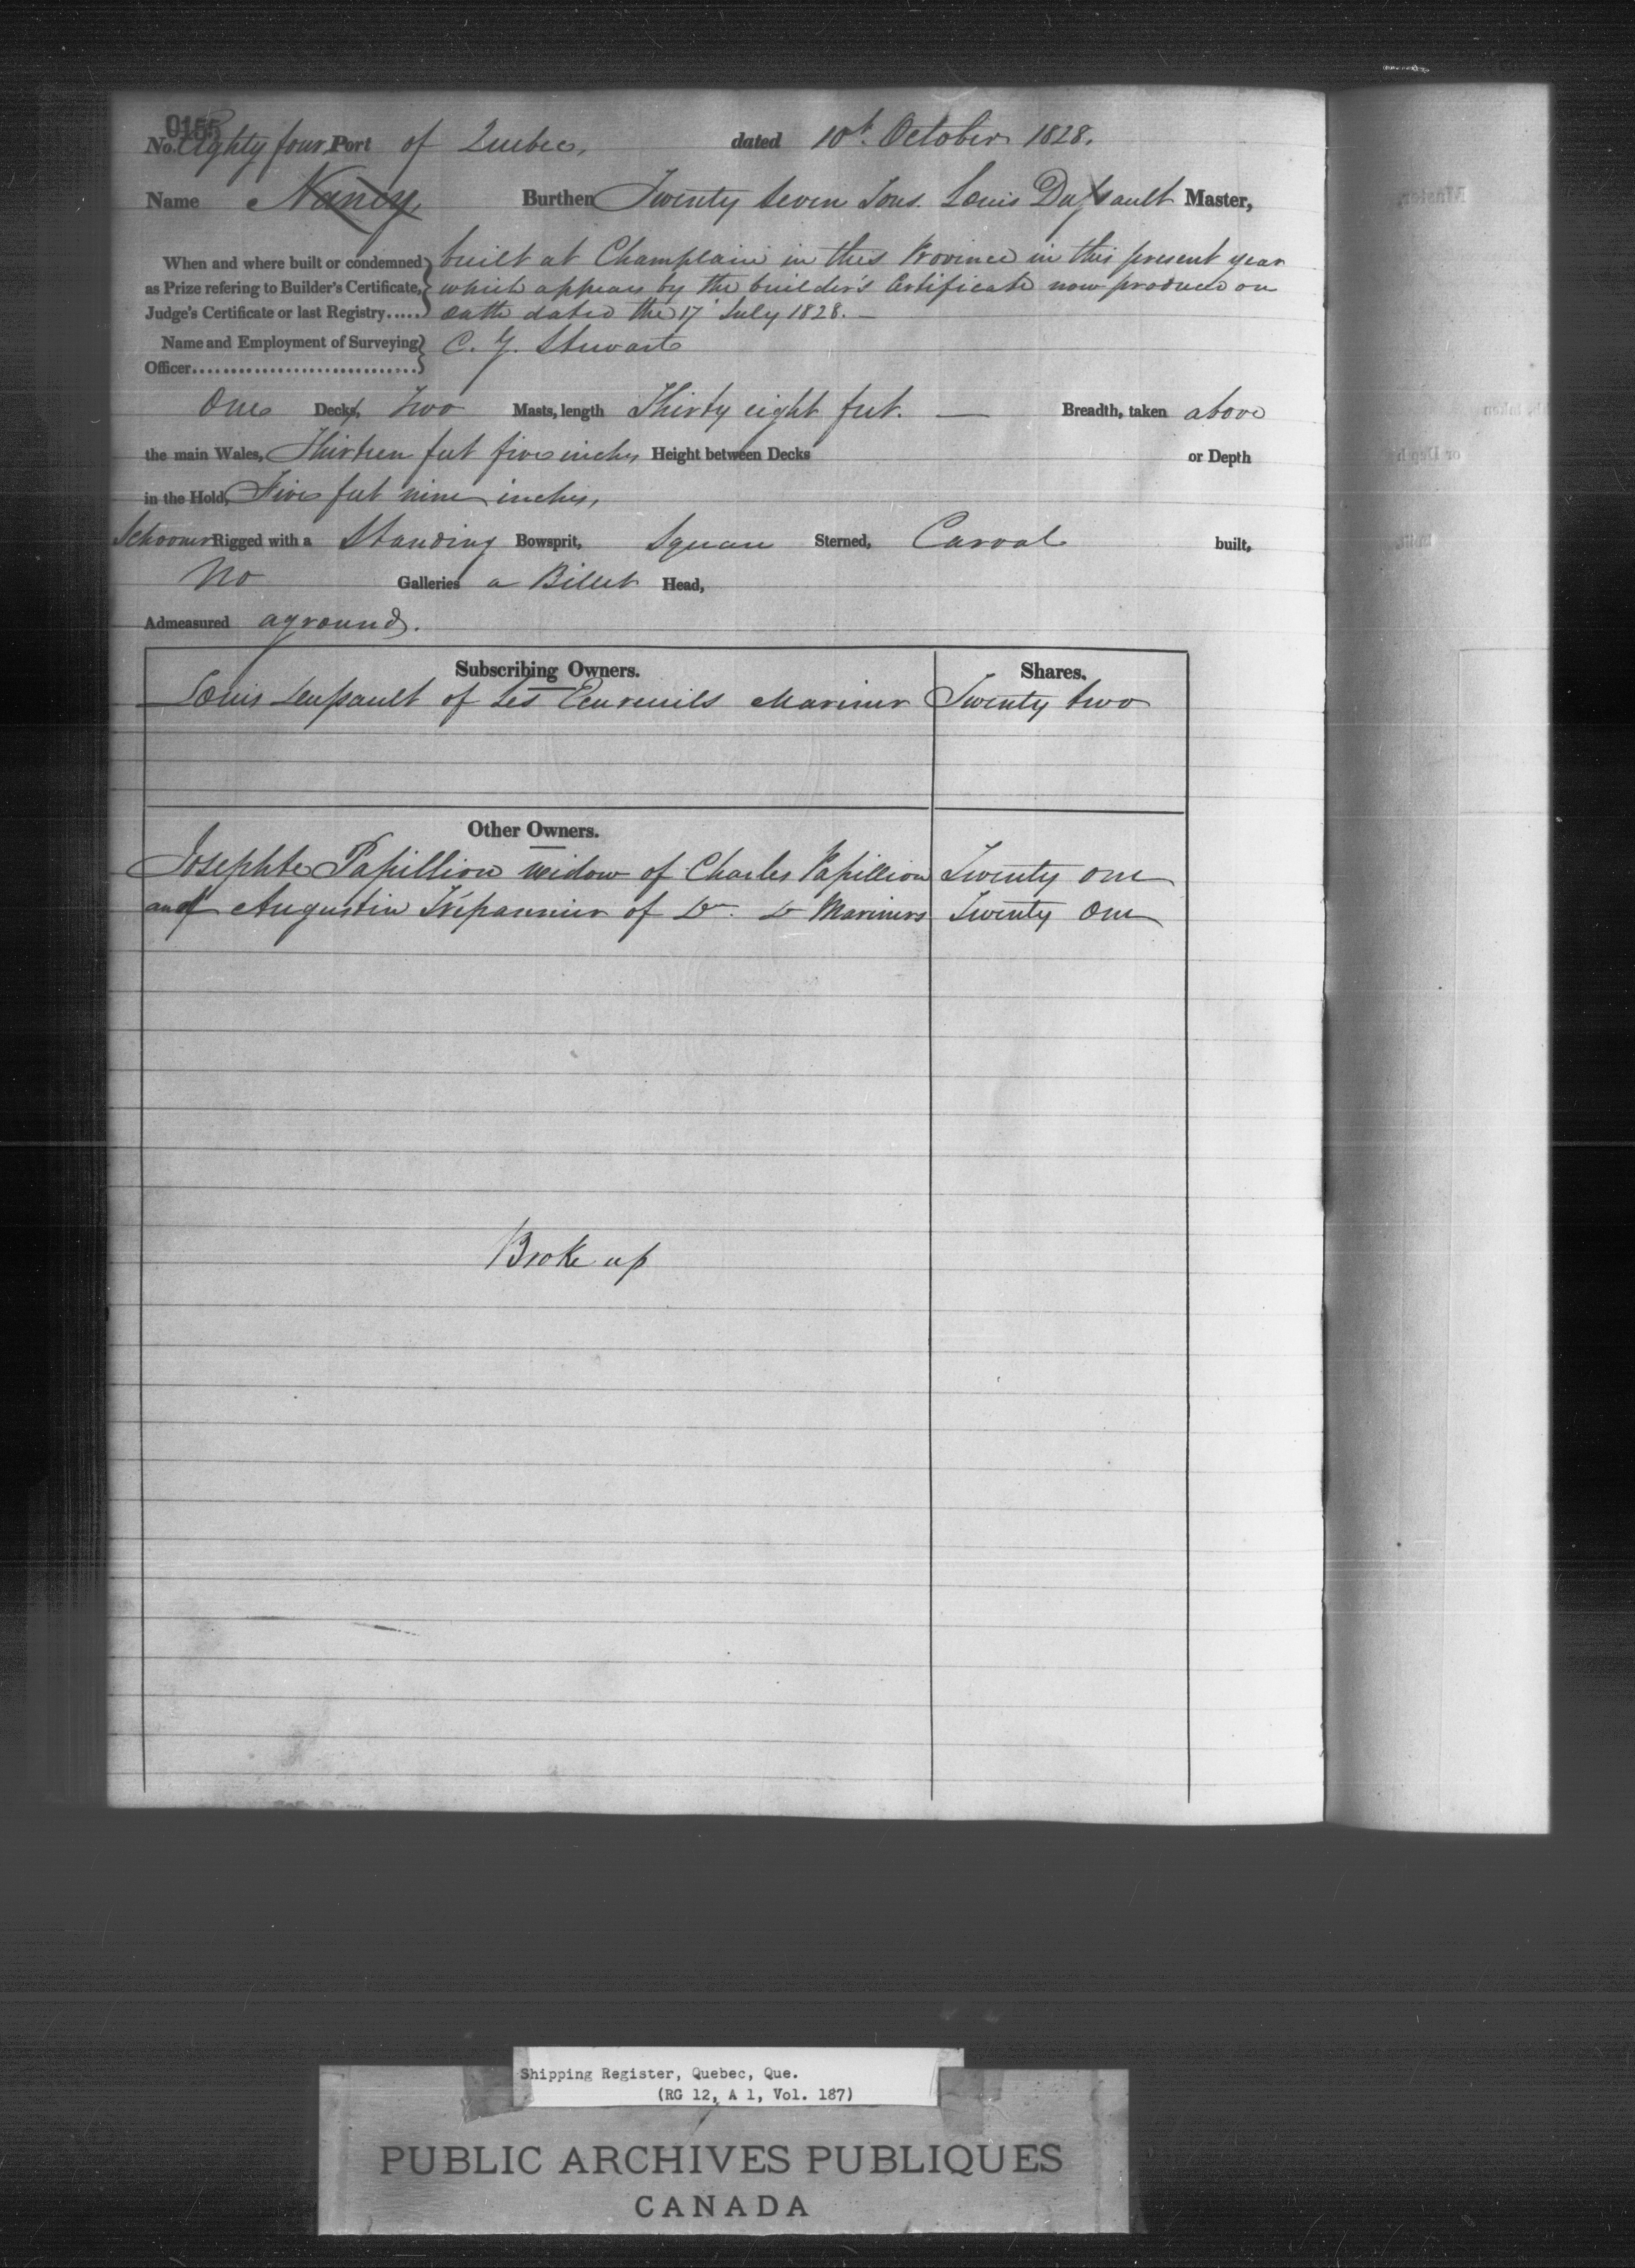 0155
No. Eighty four Port of Quebec, dated 10th October 1828.
Name Nancy, Burthen Twenty seven Tons. Louis Dussault Master,
When and where built or condemned built at Champlain in this Province in this present year
as Prize refering to Builder's Certificate, which appears by the builder's Certificate now produced on
Judge's Certificate or last Registry..... Oath dated the 17 July 1828. —
Name and Employment of Surveying C. G. Stewart
Officer..............................
One Decks, Two Masts, length Thirty eight feet. — Breadth, taken above
the main Wales, Thirteen feet five inches Height between Decks or Depth
in the Hold, Five feet nine inches,
Schooner Rigged with a Standing Bowsprit, Square Sterned, Carval built,
No Galleries a Billet Head,
Admeasured aground.
Subscribing Owners. Shares.
Louis Dussault of Les Ecureuils Mariner Twenty two
Other Owners.
Josephte Papillion widow of Charles Papillion Twenty one
and Augustin Trépannier of Do. Do Mariners Twenty One
Broke up
Shipping Register, Quebec, Que.
(RG 12, A 1, Vol. 187)
PUBLIC ARCHIVES PUBLIQUES
CANADA